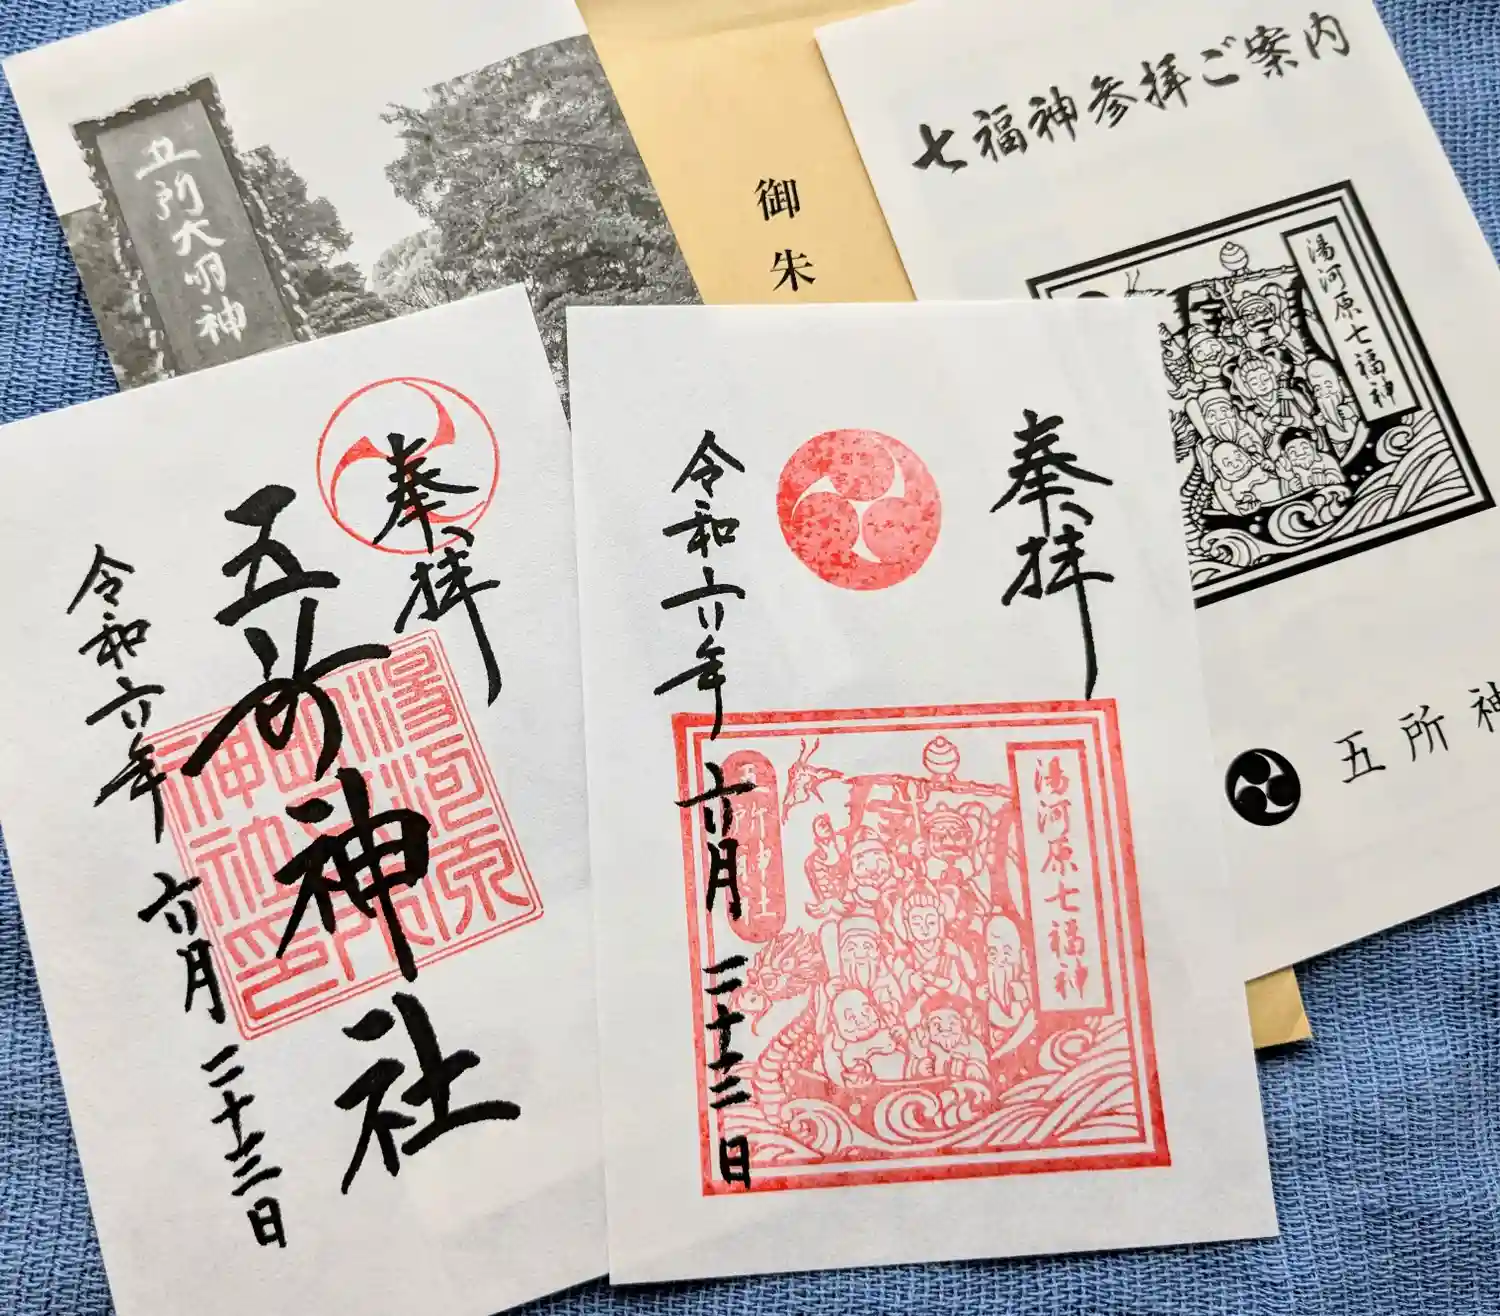 五所大明神
御朱
七福神参拝ご案内
湯河原七福神
五所神
奉拝
五所神社
令和六年 六月 二十二日
奉拝
令和六年 六月 二十二日
五所神社
湯河原七福神